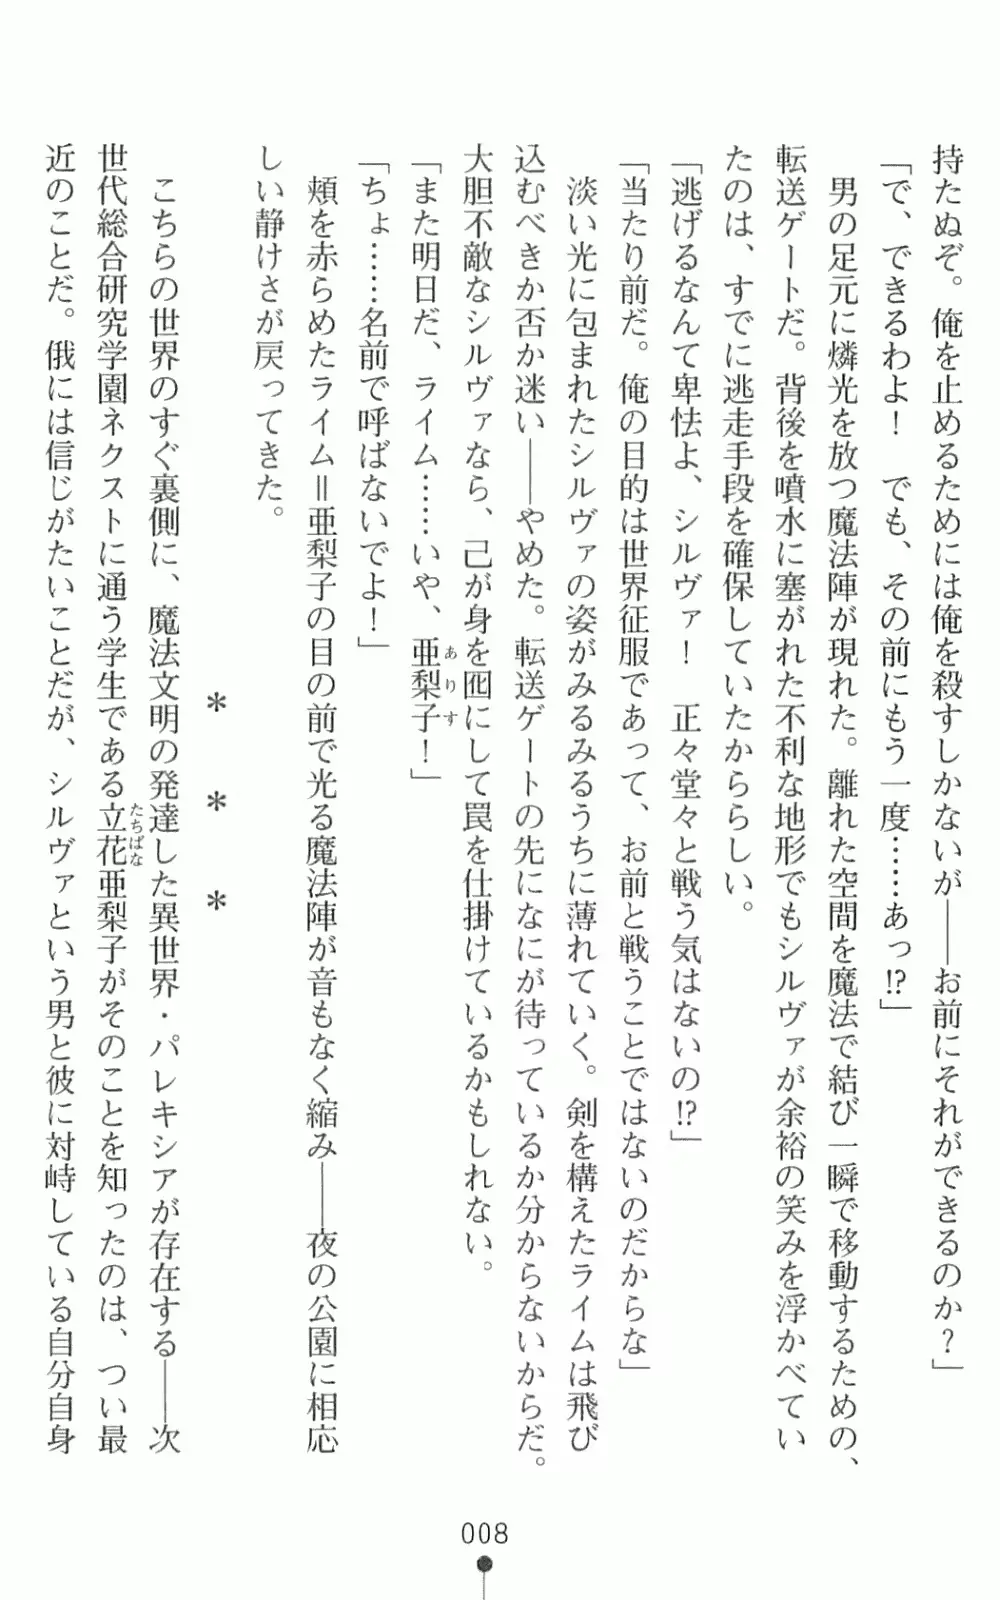 持たぬぞ。俺を止めるためには俺を殺すしかないが――お前にそれができるのか？」
「で、できるわよ！　でも、その前にもう一度……あっ!?」
　男の足元に燐光を放つ魔法陣が現れた。離れた空間を魔法で結び一瞬で移動するための、
転送ゲートだ。背後を噴水に塞がれた不利な地形でもシルヴァが余裕の笑みを浮かべてい
たのは、すでに逃走手段を確保していたかららしい。
「逃げるなんて卑怯よ、シルヴァ！　正々堂々と戦う気はないの!?」
「当たり前だ。俺の目的は世界征服であって、お前と戦うことではないのだからな」
　淡い光に包まれたシルヴァの姿がみるみるうちに薄れていく。剣を構えたライムは飛び
込むべきか否か迷い――やめた。転送ゲートの先になにが待っているか分からないからだ。
大胆不敵なシルヴァなら、己が身を囮にして罠を仕掛けているかもしれない。
「また明日だ、ライム……いや、亜梨子！」
ありす
「ちょ……名前で呼ばないでよ！」
　頬を赤らめたライム＝亜梨子の目の前で光る魔法陣が音もなく縮み――夜の公園に相応
しい静けさが戻ってきた。
＊　＊　＊
　こちらの世界のすぐ裏側に、魔法文明の発達した異世界・パレキシアが存在する――次
世代総合研究学園ネクストに通う学生である立花亜梨子がそのことを知ったのは、つい最
たちばな
近のことだ。俄には信じがたいことだが、シルヴァという男と彼に対峙している自分自身
008